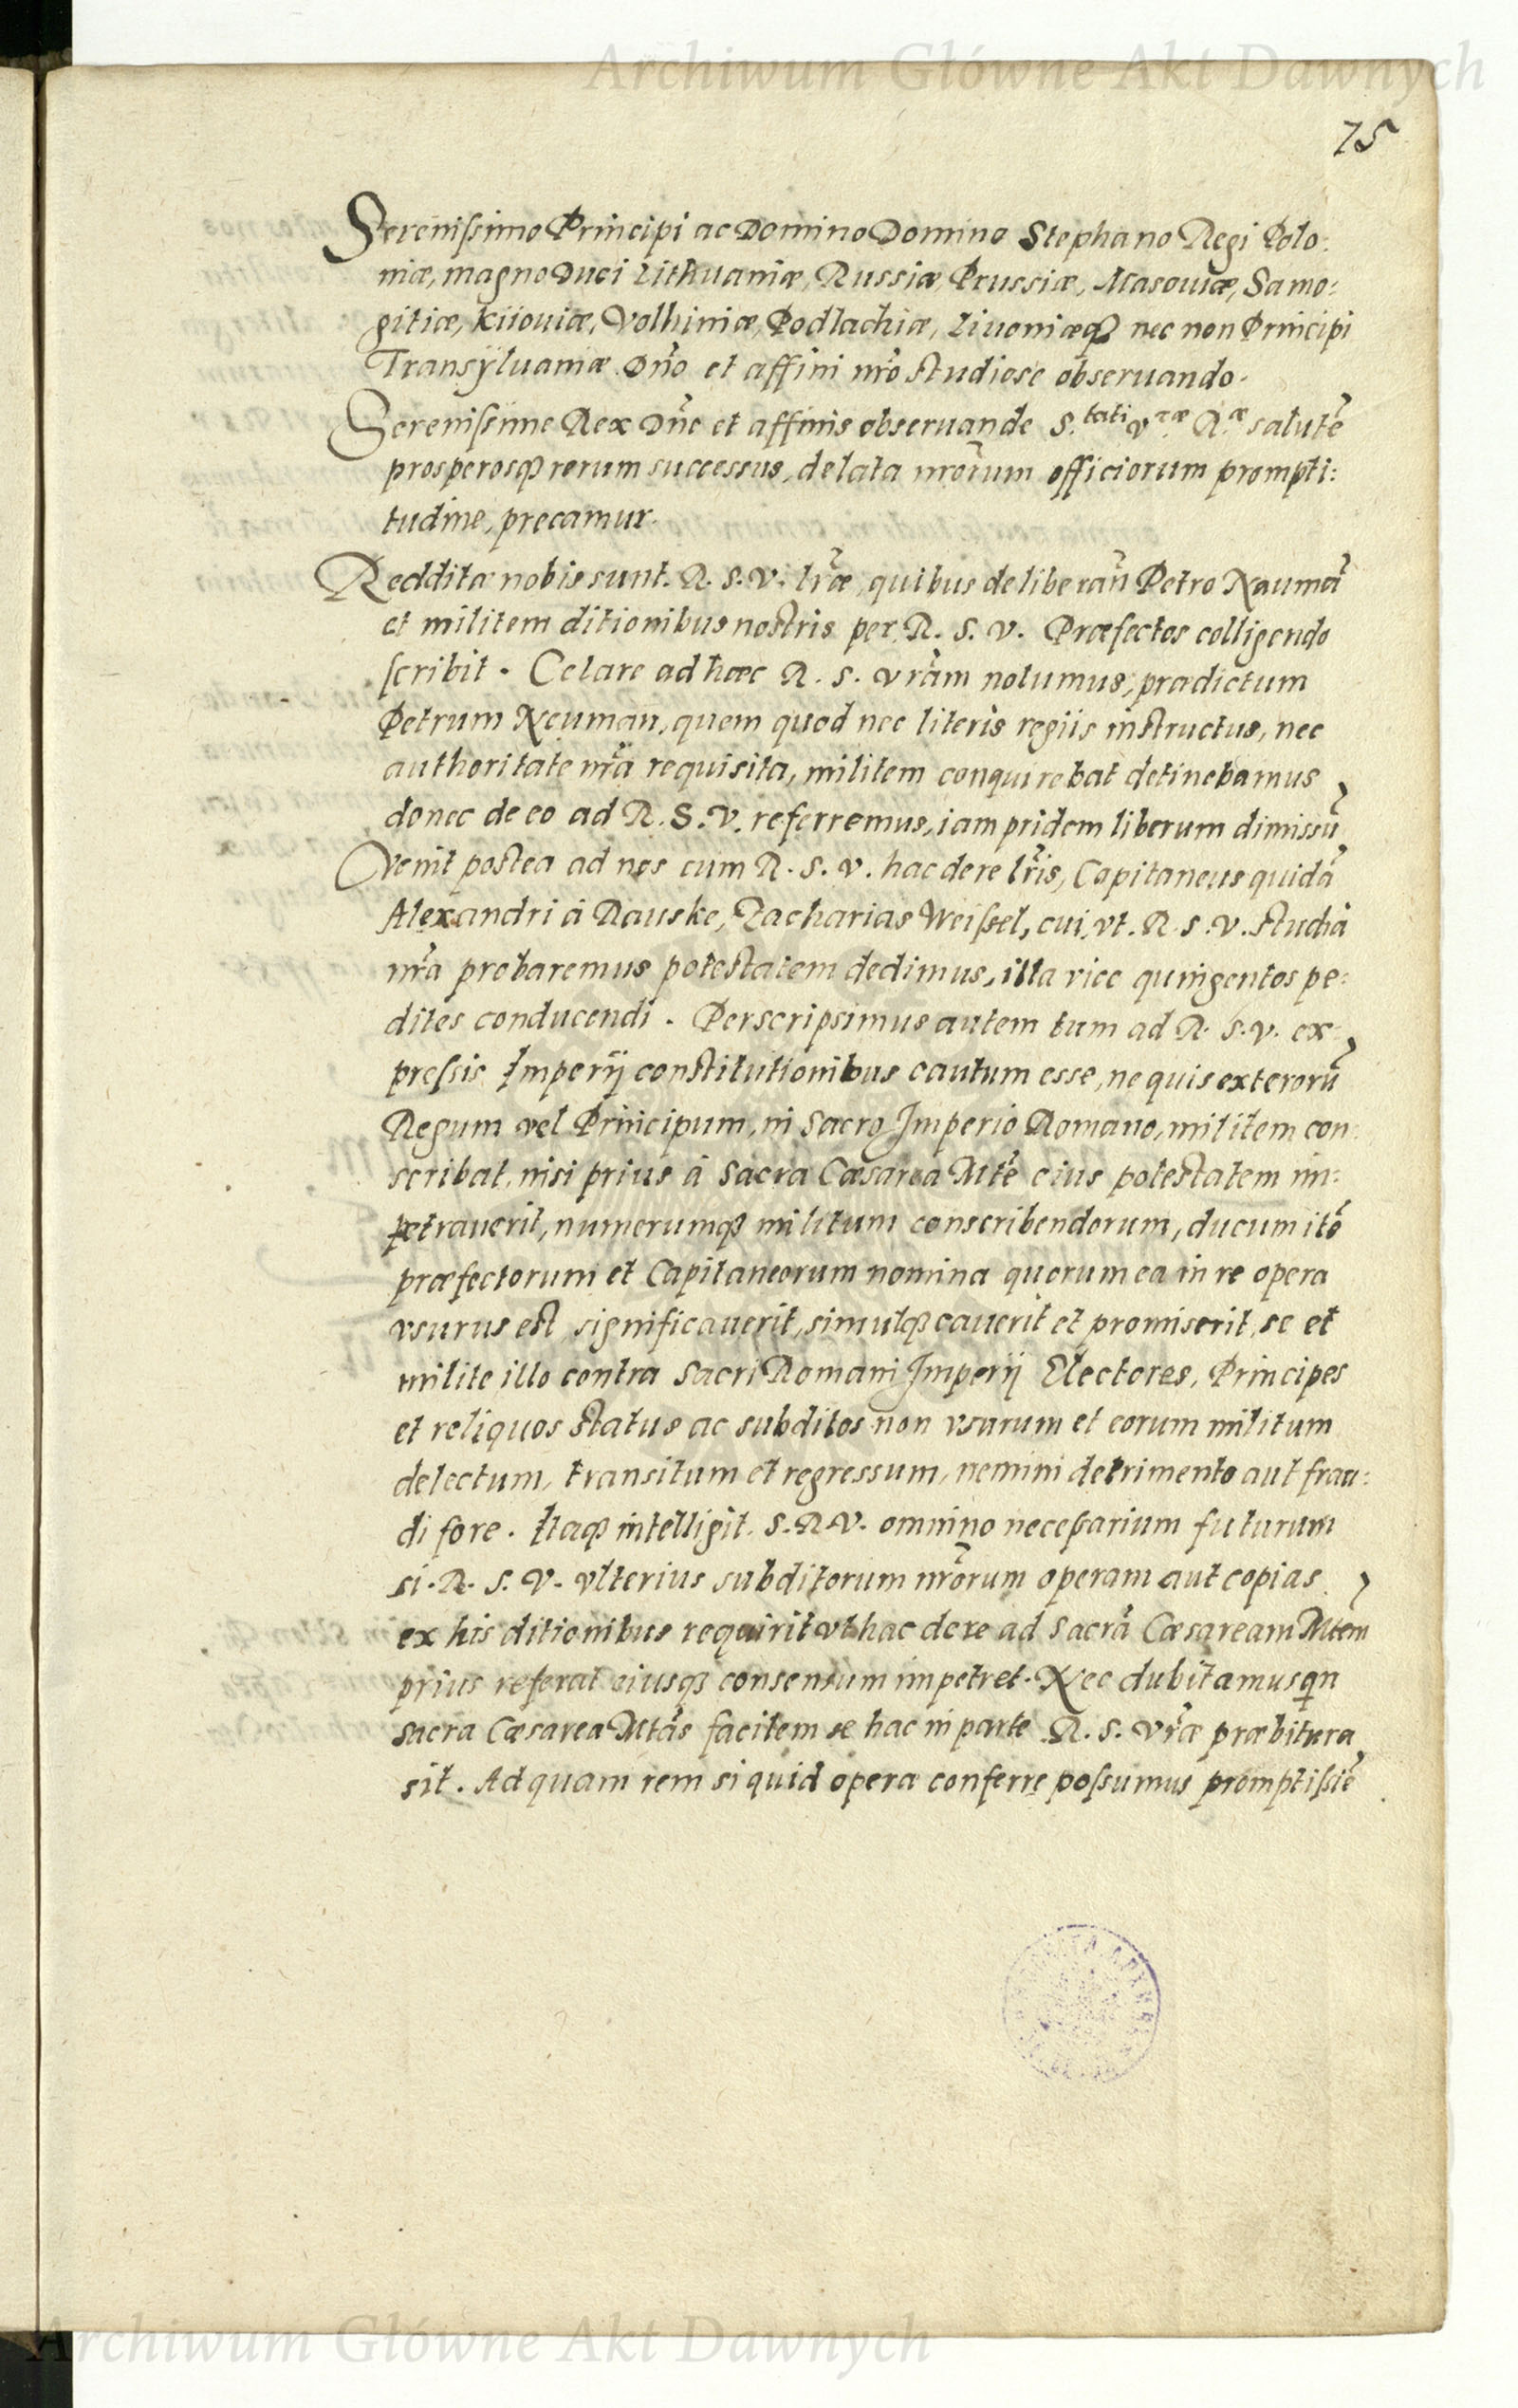 Archiwum Główne Akt Dawnych
75
Serenissimo Principi ac Domino Domino Stephano Regi Polo:
niæ, magno Duci Lithuaniæ, Russiæ, Prussiæ, Masouiæ, Samo:
gitiæ, Kiiouiæ, Volhiniæ, Podlachiæ, Liuoniæq₃ nec non Principi
Transÿluaniæ Dn̄o et affini nr̄o studiose obseruando.
Serenissime Rex Dn̄e et affinis obseruande S.tati Vræ R.æ salutē
prosperosq₃ rerum successus, delata nr̄orum officiorum prompti:
tudine, precamur.
Redditæ nobis sunt. R. S. V. lr̄æ, quibus de liberan̄ Petro Naumā
et militem ditionibus nostris per R. S. V. Præfectos colligendo
scribit. Celare ad hæc R. S. Vr̄am nolumus, prædictum
Petrum Neuman, quem quod nec literis regiis instructus, nec
authoritate nr̄a requisita, militem conquirebat detinebamus
donec de eo ad R. S. V. referremus, iam pridem liberum dimissū,
Venit postea ad nos cum R. S. V. hac de re lr̄is, Capitaneus quidā
Alexandri à Rauske, Zacharias Weissel, cui, vt. R. S. V. studia
nr̄a probaremus potestatem dedimus, illa vice quingentos pe:
dites conducendi. Perscripsimus autem tum ad R. S. V. ex:
pressis Imperÿ constitutionibus cautum esse, ne quis exterorū
Regum vel Principum, in Sacro Imperio Romano, militem con:
scribat, nisi prius à Sacra Cæsarea Mtē eius potestatem im:
petrauerit, numerumq₃ militum conscribendorum, ducum itē
præfectorum et Capitaneorum nomina quorum ea in re opera
vsurus est, significauerit, simulq₃ cauerit et promiserit, se et
milite illo contra Sacri Romani Imperÿ Electores, Principes
et reliquos status ac subditos non vsurum et eorum militum
delectum, transitum et regressum, nemini detrimento aut frau:
di fore. Itaq₃ intelligit. S. R. V. omnino necessarium futurum
si. R. S. V. vlterius subditorum nr̄orum operam aut copias
ex his ditionibus requirit vt hac de re ad Sacrā Cæsaream Mtem
prius referat eiusq₃ consensum impetret. Nec dubitamus qn
Sacra Cæsarea Mtās facilem se hac in parte R. S. Vr̄æ præbitura
sit. Ad quam rem si quid opera conferre possumus promptissīē
Archiwum Główne Akt Dawnych